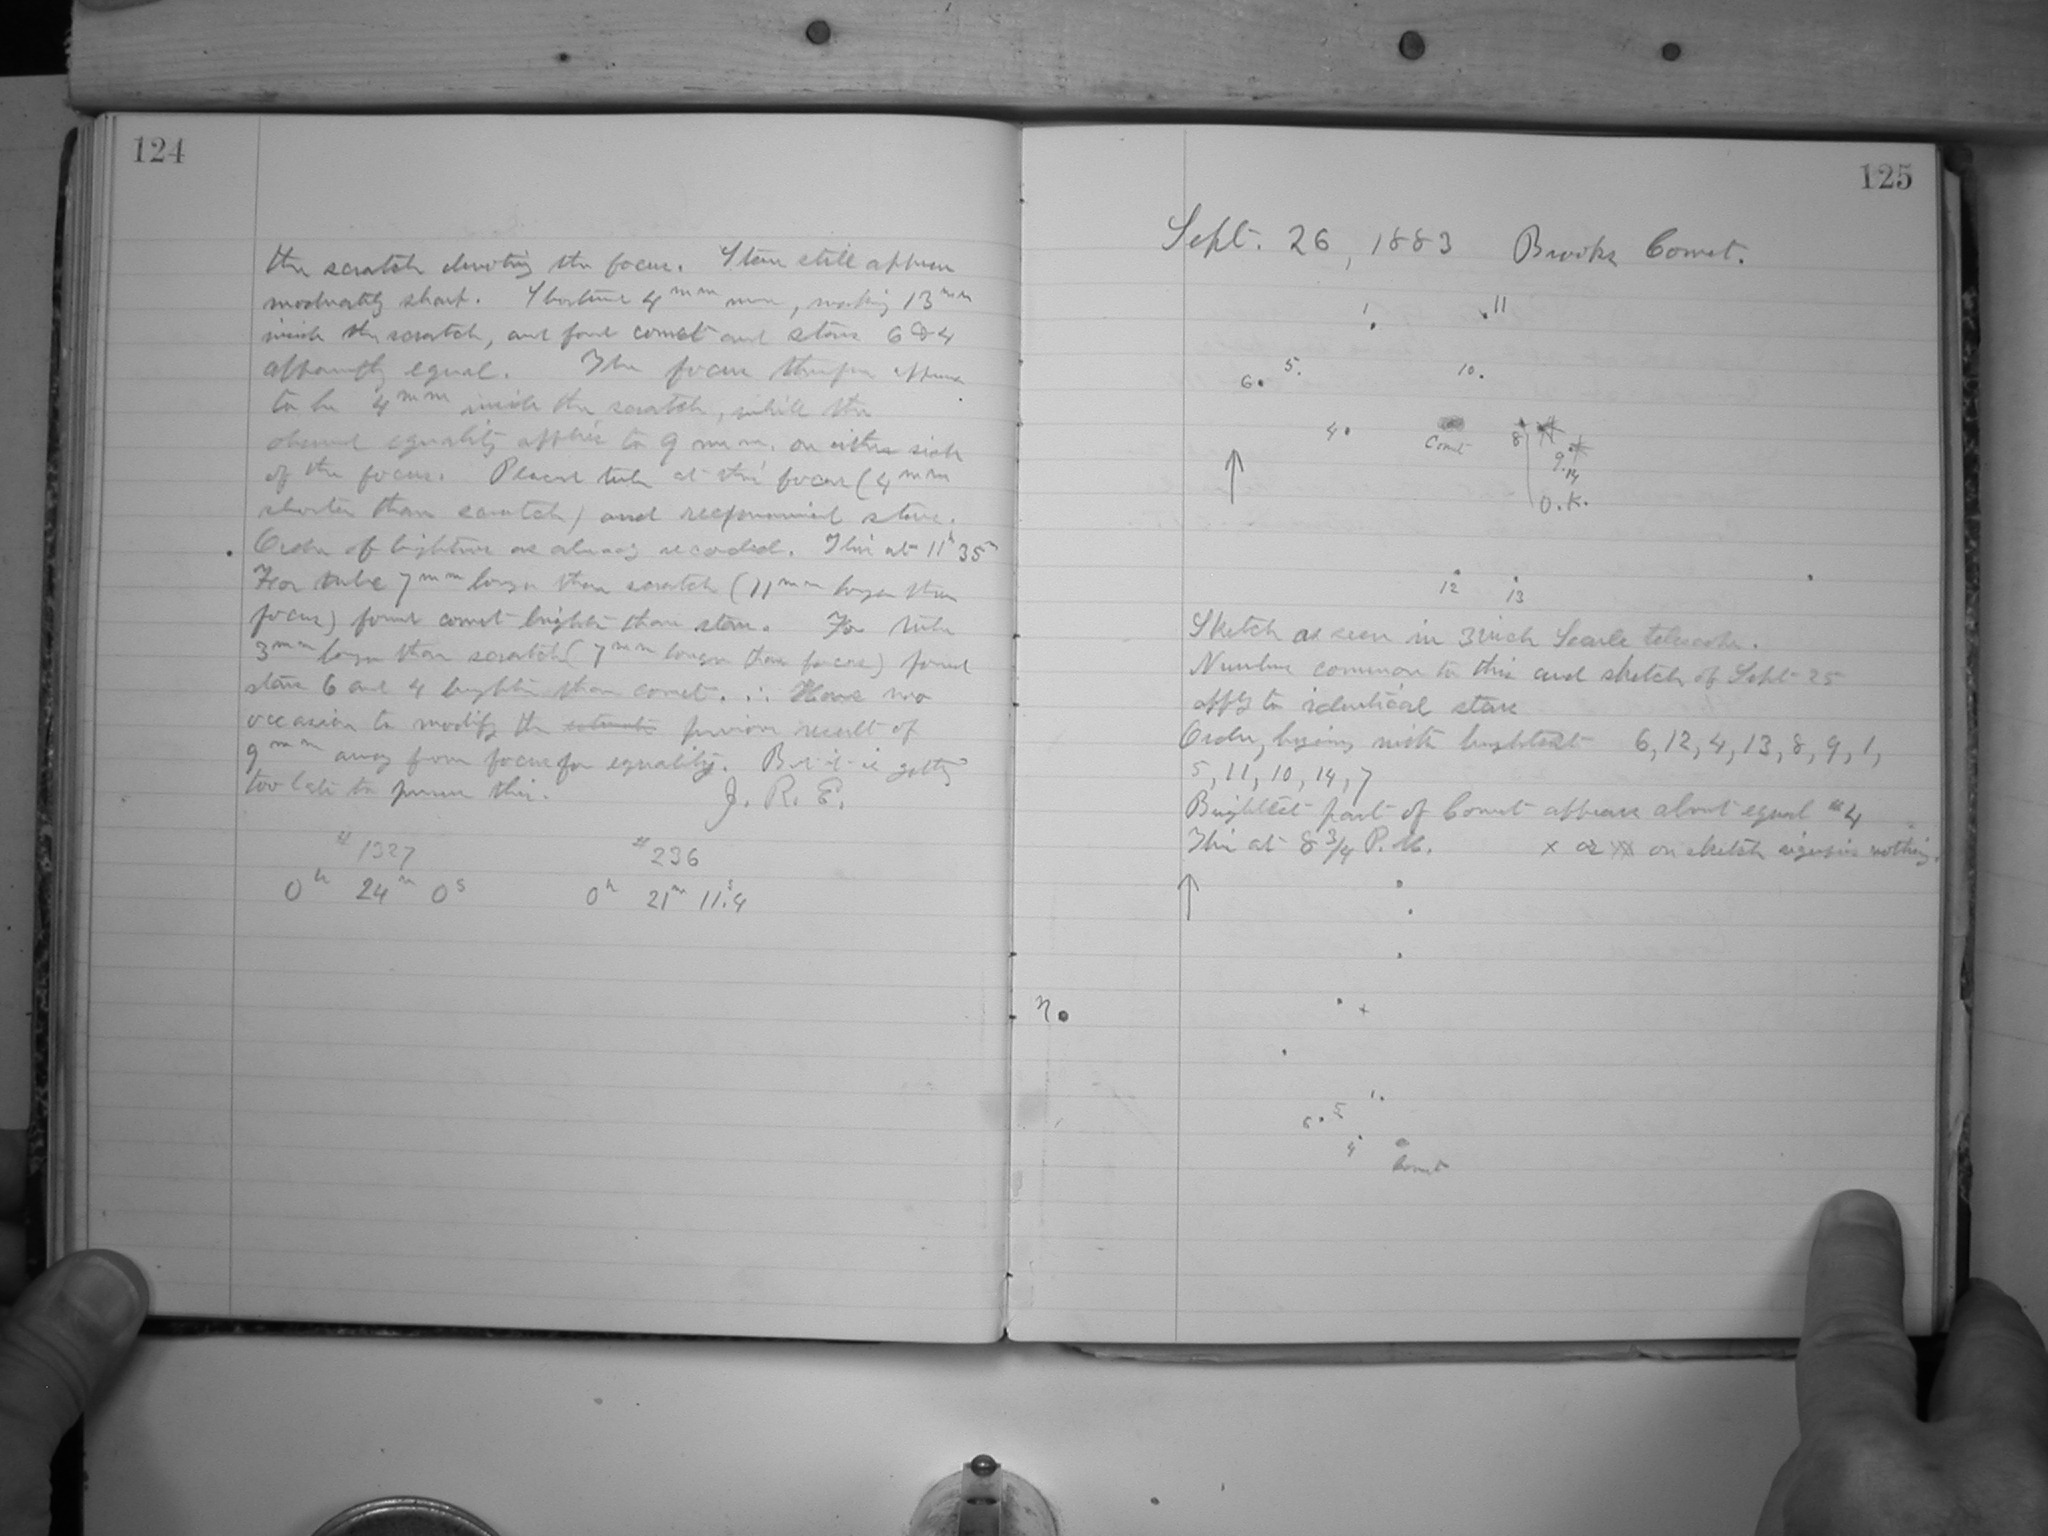 124
the scratch denoting the focus. Stars still appear
moderately sharp. Shortened 4mm more, making 13mm
inside the scratch, and found comet and stars 6 & 4
apparently equal. The focus therefore appears
to be 4mm inside the scratch, while the
observed equality applies to 9 mm. on either side
of the focus. Placed tube at this focus (4mm
shorter than scratch) and reexamined stars.
Order of brightness as already recorded. This at 11h 35m
For tube 7mm longer than scratch (11mm longer than
focus) found comet brighter than stars. For tube
3mm longer than scratch (7mm longer than focus) found
stars 6 and 4 brighter than comet. ∴ Have no
occasion to modify the estimate previous result of
9mm away from focus for equality. But it is getting
too late to pursue this. J. R. E.
#1327 #236
0h 24m 0s 0h 21m 11.s4
125
Sept. 26, 1883 Brooks Comet.
1 11
5. 10.
6.
4. Comet 8
9. 14
O.K.
12 13
Sketch as seen in 3 inch Searle telescope.
Numbers common to this and sketch of Sept 25
apply to identical stars
Order, beginning with brightest 6, 12, 4, 13, 8, 9, 1,
5, 11, 10, 14, 7
Brightest part of Comet appears about equal #4
This at 8 3/4 P.M. x or xx on sketch signifies nothing.
η
1.
6. 5
4 Comet